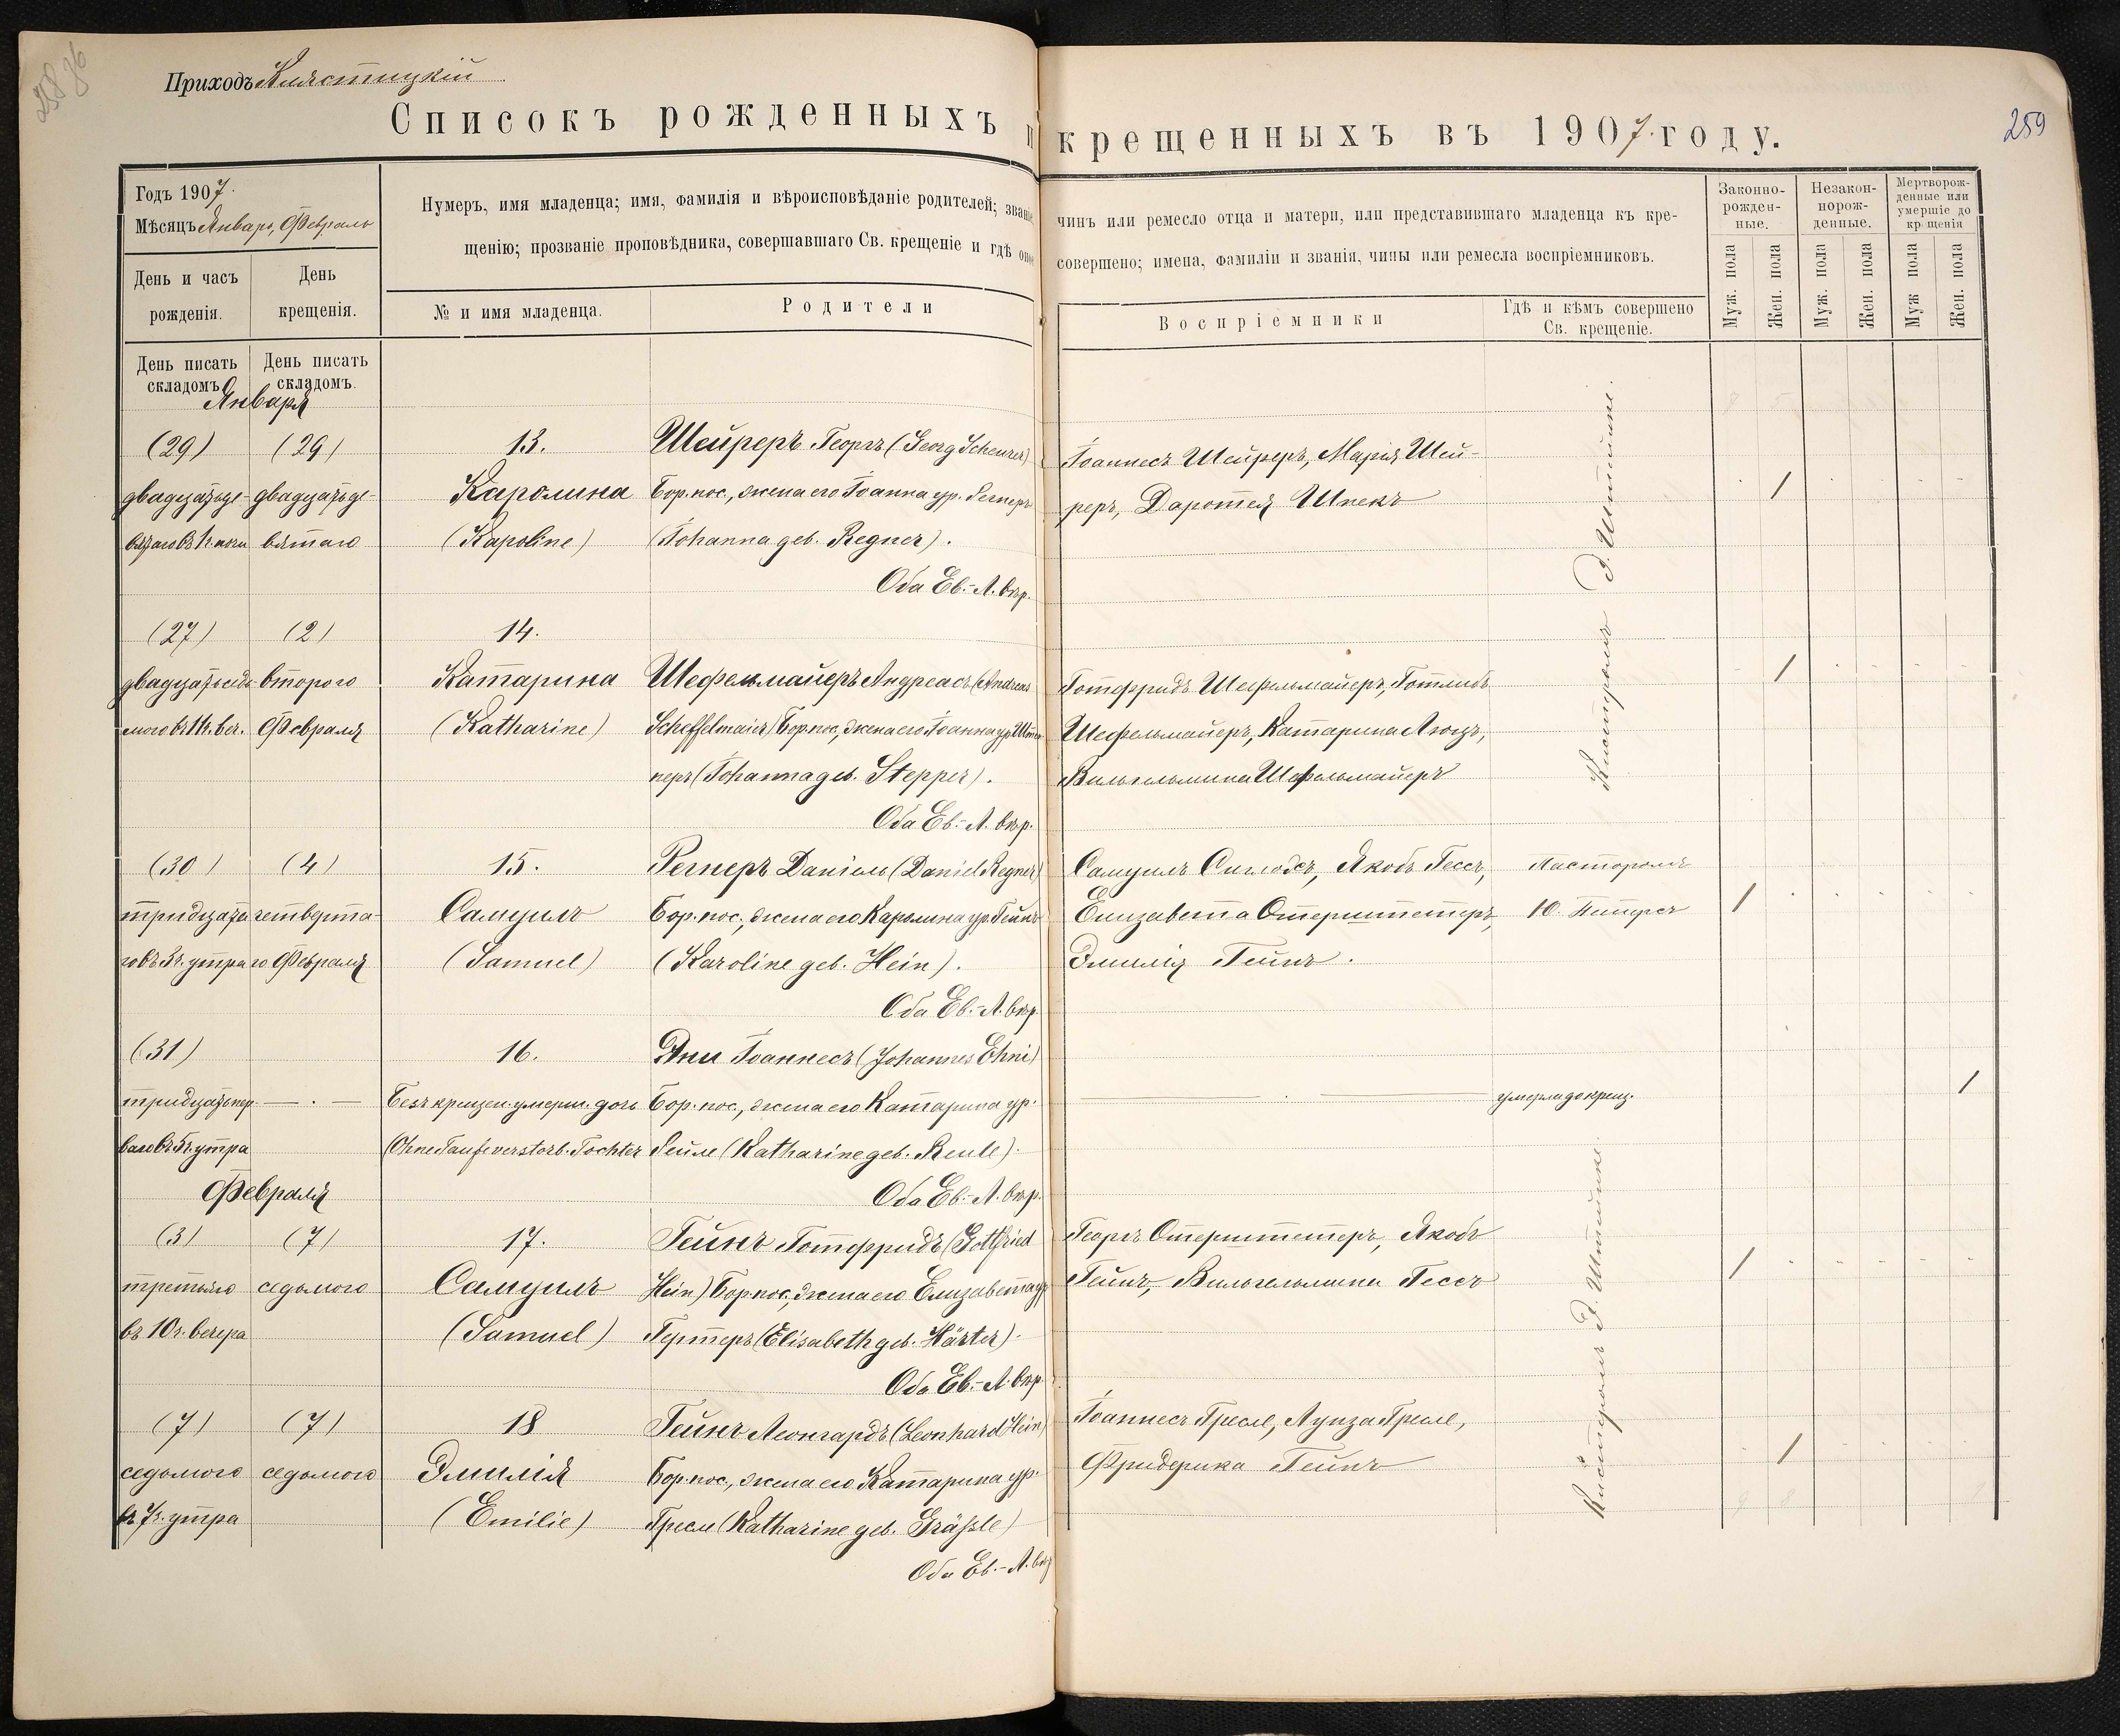 Приходъ Клястицкій
Списокъ рожденныхъ и крещенныхъ въ 1907 году.
259
Годъ 1907.
Мѣсяцъ Январь, Февраль
Нумеръ, имя младенца; имя, фамилія и вѣроисповѣданіе родителей; званіе, чинъ или ремесло отца и матери, или представившаго младенца къ кре-
щенію; прозваніе проповѣдника, совершавшаго Св. крещеніе и гдѣ оное совершено; имена, фамиліи и званія, чины или ремесла воспріемниковъ.
Законно-
рожден-
ные.
Незакон-
норож-
денные.
Мертворож-
денные или
умершіе до
крещенія
День и часъ
рожденія.
День
крещенія.
№ и имя младенца.
Родители
Воспріемники
Гдѣ и кѣмъ совершено
Св. крещеніе.
Муж. пола
Жен. пола
Муж. пола
Жен. пола
Муж пола
Жен. пола
День писать
складомъ
День писать
складомъ.
Января
(29)
двадцать де-
вятаго въ 1 ч. ночи
(29)
двадцать де-
вятаго
13.
Каролина
(Karoline)
Шейреръ Георгъ (Georg Scheurer)
Бор. пос., жена его Іоанна ур. Регнеръ
(Johanna geb. Regner).
Оба Ев.-Л. вѣр.
Іоаннесъ Шейреръ, Марія Шей-
реръ, Даротея Шпекъ
Кистеромъ
(27)
двадцать седь-
мого въ 11 ч. веч.
(2)
второго
Февраля
14.
Катарина
(Katharine)
Шефельмайеръ Андреасъ (Andreas
Scheffelmaier) Бор. пос., жена его Іоанна ур. Штеп-
перъ (Johanna geb. Stepper).
Оба Ев.-Л. вѣр.
Готфридъ Шефельмайеръ, Готлибъ
Шефельмайеръ, Катарина Люцъ,
Вильгельмина Шефельмайеръ
(30)
тридцата-
го въ 3 ч. утра
(4)
четверта-
го Февраля
15.
Самуилъ
(Samuel)
Регнеръ Даніель (Daniel Regner)
Бор. пос., жена его Каролина ур. Гейнъ
(Karoline geb. Hein).
Оба Ев.-Л. вѣр.
Самуилъ Якобъ Гессъ,
Елизавета Отерштетеръ,
Эмилія Гейнъ.
Пасторомъ
Ю. Петерсъ
(31)
тридцать пер-
ваго въ 5 ч. утра
16.
Безъ крещен. умерш. дочь
(Ohne Taufe verstorb. Tochter
Эни Іоаннесъ (Johannes Ehni)
Бор. пос., жена его Катарина ур.
Рейле (Katharine geb. Reule).
Оба Ев.-Л. вѣр.
умерла до крещ.
Февраля
(3)
третьяго
въ 10 ч. вечера
(7)
седьмого
17.
Самуилъ
(Samuel)
Гейнъ Готфридъ (Gottfried
Hein) Бор. пос., жена его Елизавета ур.
Гертеръ (Elisabeth geb. Härter).
Оба Ев.-Л. вѣр.
Георгъ Отерштетеръ, Якобъ
Гейнъ, Вильгельмина Гессъ
Кистеромъ
(7)
седьмого
въ 7 ч. утра
(7)
седьмого
18
Эмилія
(Emilie)
Гейнъ Леонгардъ (Leonhard Hein)
Бор. пос., жена его Катарина ур.
Гресле (Katharine geb. Gräßle)
Оба Ев.-Л. вѣр
Іоаннесъ Гресле, Луиза Гресле,
Фридерика Гейнъ